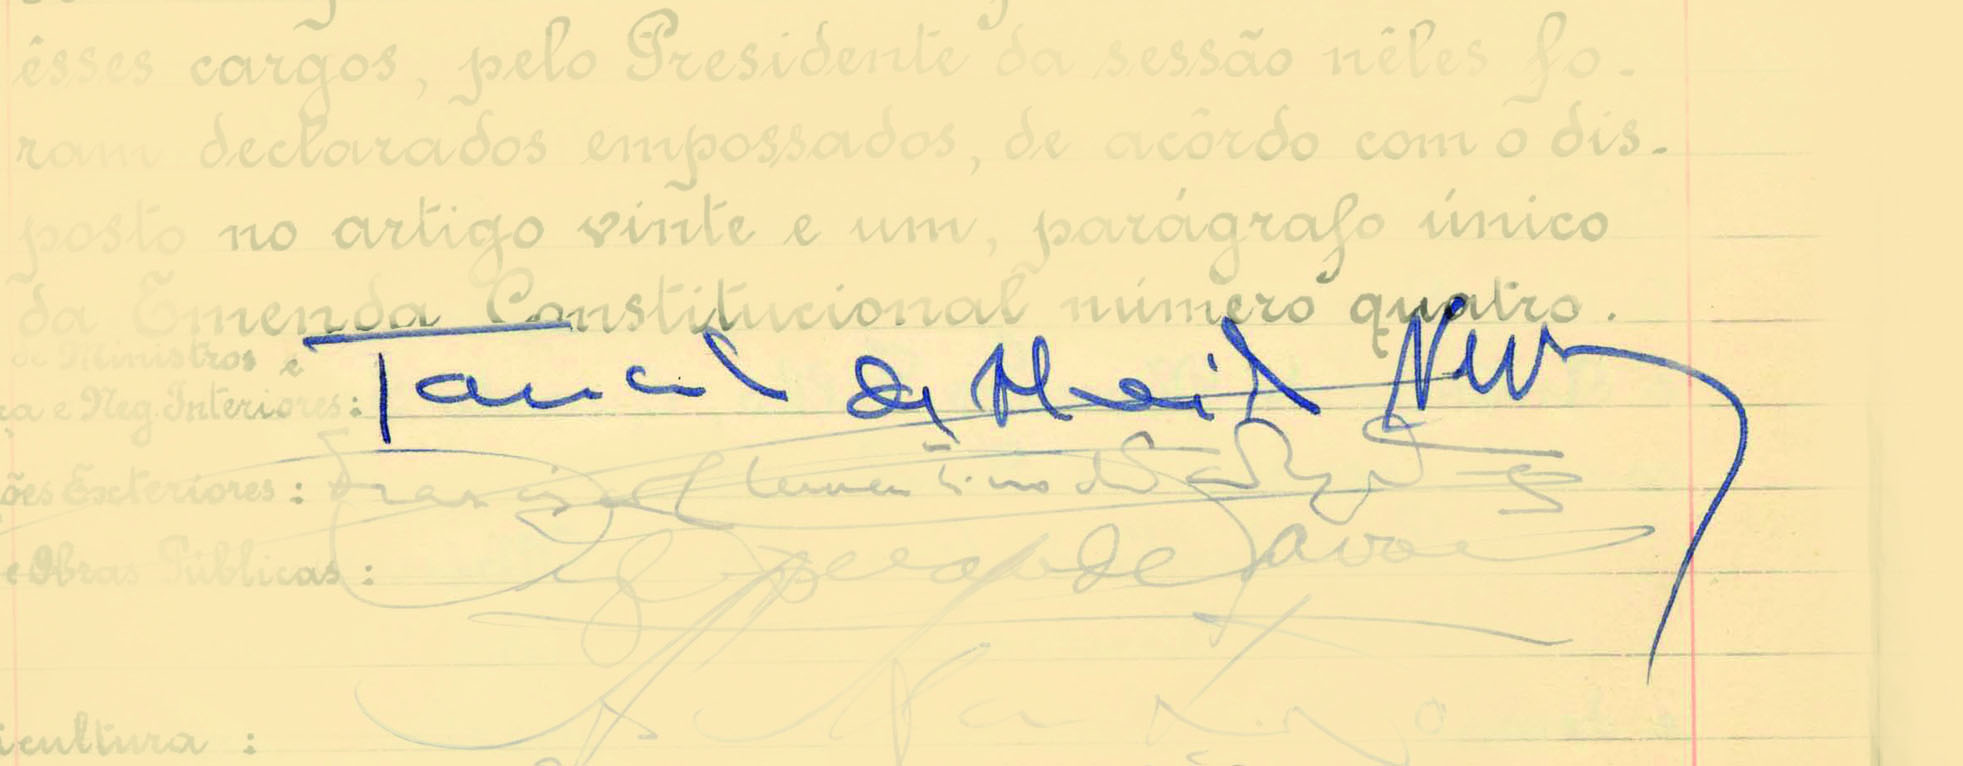 êsses cargos, pelo Presidente da sessão nêles fo-
ram declarados empossados, de acôrdo com o dis-
posto no artigo vinte e um, parágrafo único
da Emenda Constitucional número quatro.
de Ministros e
ça e Neg. Interiores: Tancredo de Almeida Neves
ções Exteriores: Francisco Clementino de San Tiago Dantas
e Obras Públicas:
icultura: